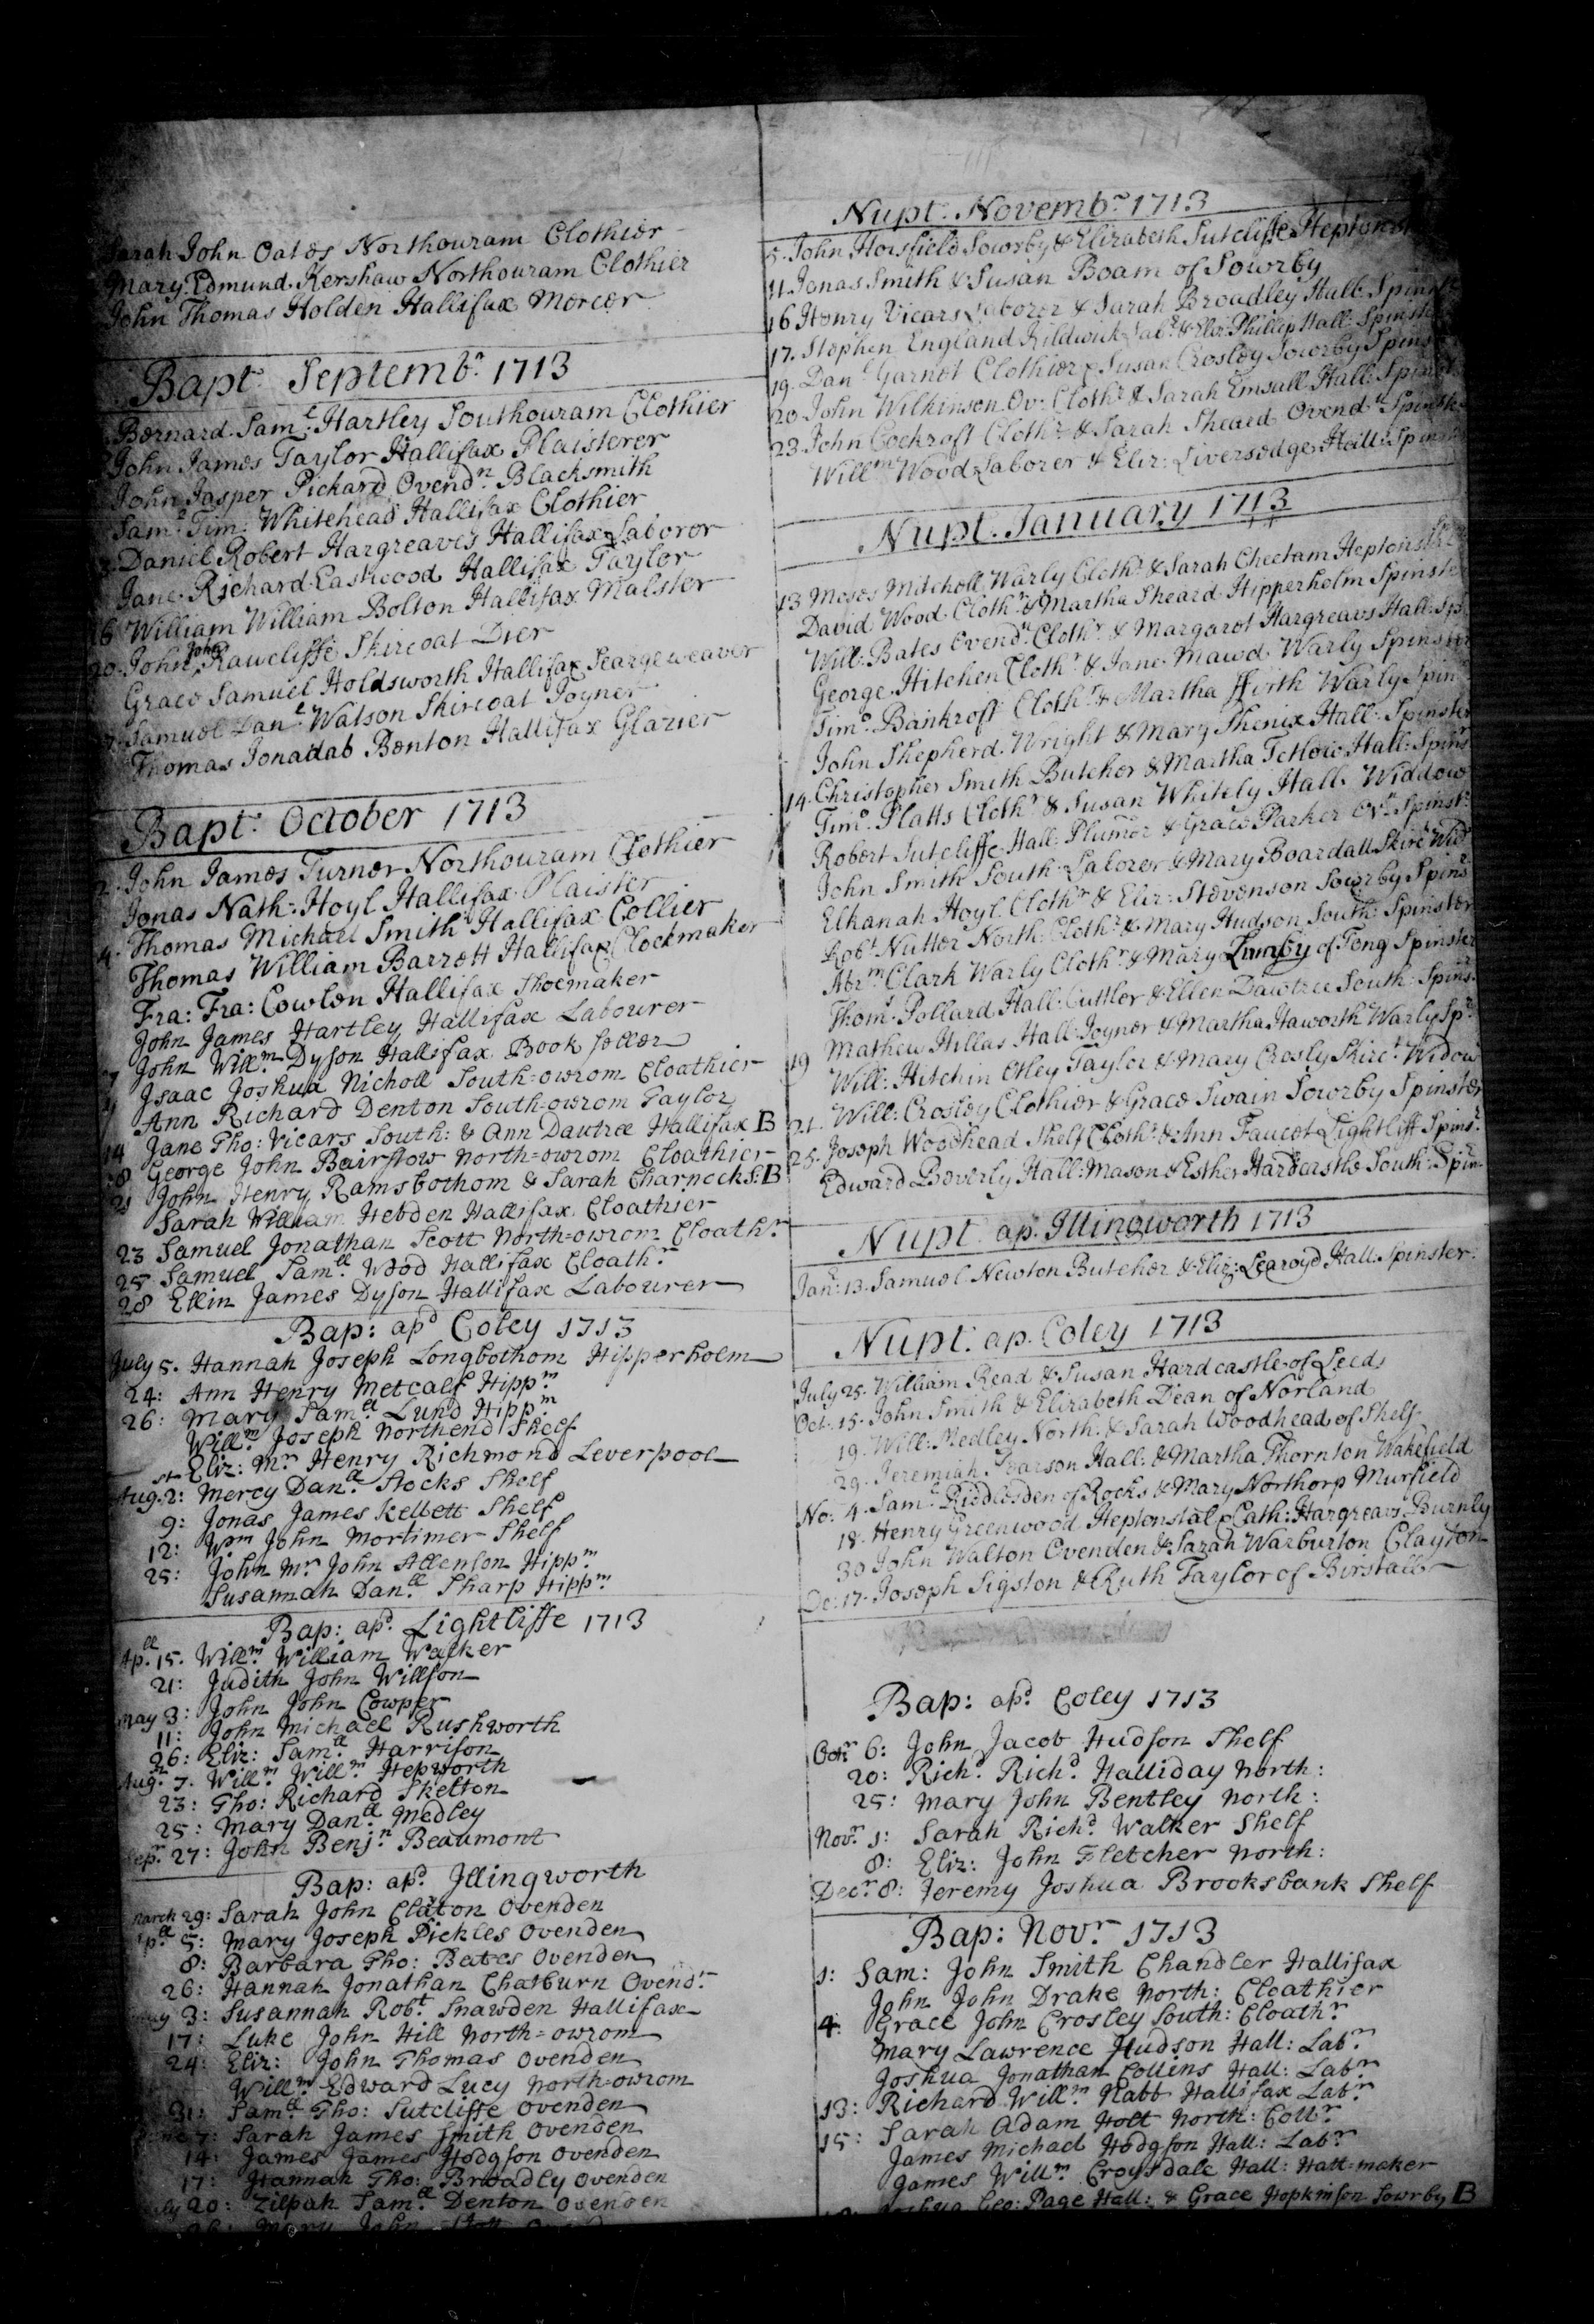 Sarah John Oates Northouram Clothier
Mary Edmund Kershaw Northouram Clothier
John Thomas Holden Hallifax Mercer
Bapt. Septembr. 1713
Bernard Saml. Hartley Southouram Clothier
John James Taylor Hallifax Plaisterer
John Jasper Pickard Ovendn. Blacksmith
Saml. Tim: Whitehead Hallifax Clothier
Daniel Robert Hargreaves Hallifax Laboror
Jane Richard Eastwood Hallifax Taylor
16 William William Bolton Hallifax Malster
20. John John Rawcliffe Skircoat Dier
Grace Samuel Holdsworth Hallifax Seargeweaver
Samuel Danl. Watson Skircoat Joyner
Thomas Jonadab Benton Hallifax Glazier
Bapt. October 1713
2. John James Turner Northouram Clothier
Jonas Nath: Hoyl Hallifax Plaister
4. Thomas Michael Smith Hallifax Collier
Thomas William Barrett Hallifax Clockmaker
Fra: Fra: Cowlen Hallifax Shoemaker
John James Hartley Hallifax Labourer
7 John Willm. Dyson Hallifax Book seller
Isaac Joshua Nicholl South=owrom Cloathier
Ann Richard Denton South=owrom Taylor
14 Jane Tho: Vicars South: & Ann Dautree Hallifax B
18 George John Bairstow North=owrom Cloathier
21 John Henry Ramsbothom & Sarah Charnocks: B
Sarah William Hebden Hallifax Cloathier
23 Samuel Jonathan Scott North=owrom Cloathr.
25 Samuel Samll. Wood Hallifax Cloathr.
28 Ellin James Dyson Hallifax Labourer
Bap: apd Coley 1713
July 5. Hannah Joseph Longbothom Hipperholm
24: Ann Henry Metcalf Hippm.
26: Mary Samll. Lund Hippm
Willm. Joseph Northend Shelf
Eliz: Mr. Henry Richmond Leverpool
Augst. 2: Mercy Danll. Stocks Shelf
9: Jonas James Kellett Shelf
12: Wm John Mortimer Shelf
25: John Mr John Allenson Hippm.
Susannah Danll. Sharp Hippm.
Bap: apd. Lightcliffe 1713
Apll. 15. Willm. William Walker
21: Judith John Willson
May 3: John John Cowper
11: John Michael Rushworth
26: Eliz: Samll. Harrison
Augst. 7. Willm. Willm. Hepworth
23: Tho: Richard Skelton
25: Mary Danll. Medley
Sepr. 27: John Benjn. Beaumont
Bap: apd. Illingworth
March 29: Sarah John Claiton Ovenden
Apll. 5: Mary Joseph Pickles Ovenden
8: Barbara Tho: Bates Ovenden
26: Hannah Jonathan Chatburn Ovendn.
May 3: Susannah Robt. Snawden Hallifax
17: Luke John Hill North=owrom
24: Eliz: John Thomas Ovenden
Willm. Edward Lucy North=owrom
31: Samll. Tho: Sutcliffe Ovenden
June 7: Sarah James Smith Ovenden
14: James James Hodgson Ovenden
17: Hannah Tho: Broadley Ovenden
July 20: Zilpah Samll. Denton Ovenden
26: Mary John
Nupt. Novembr. 1713
5. John Horsfield Sowrby & Elizabeth Sutcliffe Heptonst
11 Jonas Smith & Susan Boam of Sowrby
16 Henry Vicars Laborer & Sarah Broadley Hall: Spinstr
17. Stephen England Kildwick Labr. & Eliz: Phillip Hall: Spinster
19. Danl. Garnet Clothier & Susan Crosley Sowrby Spins
20 John Wilkinson Ov: Clothr. & Sarah Emsall Hall: Spinst
23 John Cockroft Clothr. & Sarah Sheard Ovendn. Spinst
Willm. Wood Laborer & Eliz: Liversedge Hall: Spinst
Nupt. January 1713
13 Moses Mitchell Warly Clothr. & Sarah Cheetam Heptonst
David Wood Clothr. & Martha Sheard Hipperholm Spinster
Will: Bates Ovendn. Clothr. & Margaret Hargreavs Hall: Sp
George Hitchen Clothr. & Jane Mawd Warly Spinster
Timo. Bankroft Clothr. & Martha ffirth Warly Spin
John Shepherd Wright & Mary Phenix Hall: Spinster
14. Christopher Smith Butcher & Martha Tetlow Hall: Spinsr
Timo. Platts Clothr. & Susan Whitely Hall: Widdow
Robert Sutcliffe Hall: Plumer & Grace Parker Ovn. Spinst:
John Smith South: Laborer & Mary Boardall Skirct Wid
Elkanah Hoyl Clothr. & Eliz: Stevenson Sowrby Spinsr.
Robt. Nutter North: Clothr. & Mary Hudson South: Spinster
Abrm. Clark Warly Clothr. & Mary Lumby of Tong Spinster
Thoms. Pollard Hall: Cuttler & Ellen Dawtree South: Spinsr.
Mathew Hillas Hall: Joyner & Martha Haworth Warly Spr.
19 Will: Hitchin Otley Taylor & Mary Crosly Skirct. Widow
21. Will: Crosley Clothier & Grace Swain Sowrby Spinster
25. Joseph Woodhead Shelf Clothr. & Ann Faucet Lightliff Spinsr.
Edward Beverly Hall: Mason & Esther Hardcastle South: Spin
Nupt. ap. Illingworth 1713
Jan: 13. Samuel Newton Butcher & Eliz: Learoyd Hall: Spinster.
Nupt. ap. Coley 1713
July 25. William Read & Susan Hardcastle of Leeds
Oct. 15. John Smith & Elizabeth Dean of Norland
19. Will: Medley North: & Sarah Woodhead of Shelf
29. Jeremiah Pearson Hall: & Martha Thornton Wakefield
No: 4. Saml. Riddlesden of Rocks & Mary Northorp Murfield
18. Henry Greenwood Heptonstal & Cath: Hargreavs Burnly
30 John Walton Ovenden & Sarah Warburton Clayton
De: 17. Joseph Sigston & Ruth Taylor of Birstall
Bap: apd. Coley 1713
Octr. 6: John Jacob Hudson Shelf
20: Richd. Richd. Halliday North:
25: Mary John Bentley North:
Novr. 1: Sarah Richd. Walker Shelf
8: Eliz: John Fletcher North:
Decr. 8: Jeremy Joshua Brooksbank Shelf
Bap: Novr. 1713
1: Sam: John Smith Chandler Hallifax
John John Drake North: Cloathier
4: Grace John Crosley South: Cloathr.
Mary Lawrence Hudson Hall: Labr.
Joshua Jonathan Collins Hall: Labr.
13: Richard Willm. Nabb Hallifax Labr.
15: Sarah Adam Holt North: Collr.
James Michael Hodgson Hall: Labr.
James Willm. Croysdale Hall: Hatt=maker
Joshua Geo: Page Hall: & Grace Hopkinson Sowrby B